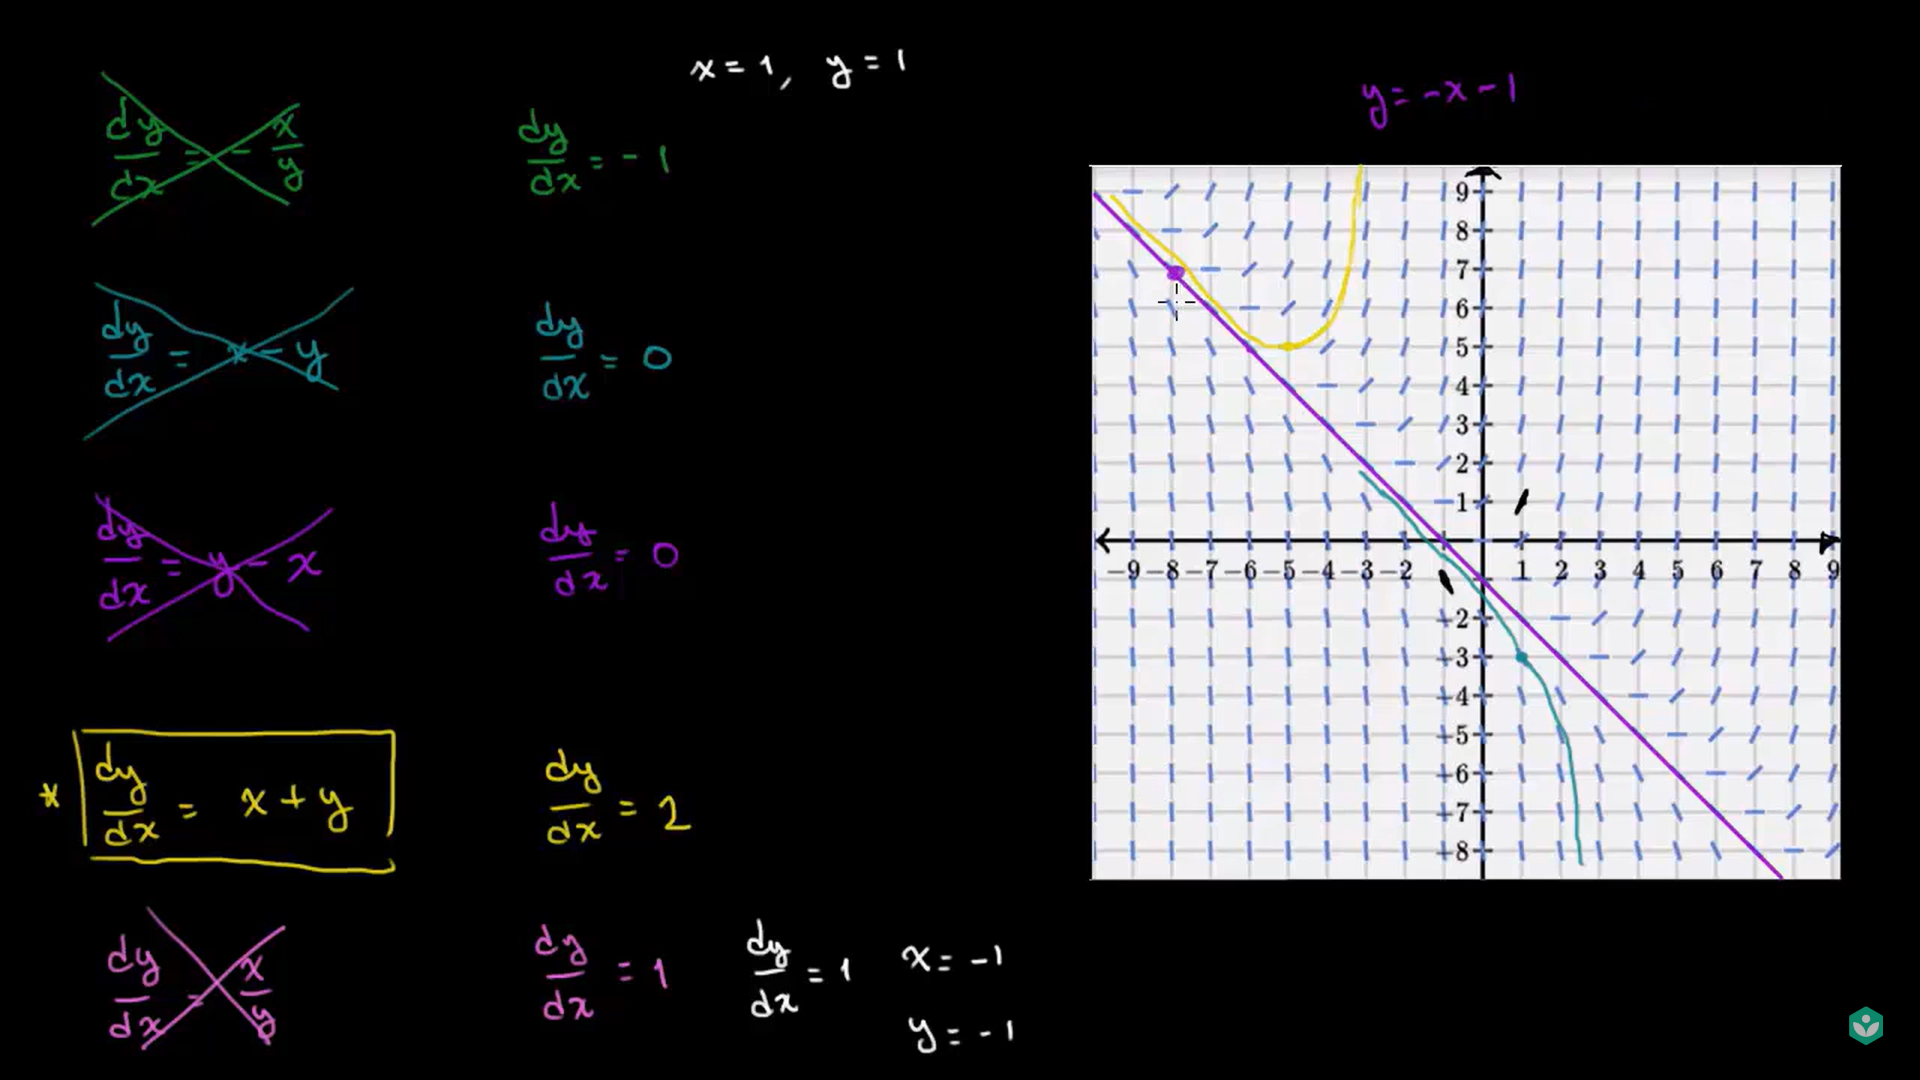 x = 1, y = 1
y = -x - 1
dy/dx = - x/y
dy/dx = - 1
dy/dx = x - y
dy/dx = 0
dy/dx = y - x
dy/dx = 0
* dy/dx = x + y
dy/dx = 2
dy/dx = x/y
dy/dx = 1
dy/dx = 1
x = -1
y = -1
9
8
7
6
5
4
3
2
1
-9 -8 -7 -6 -5 -4 -3 -2 1 2 3 4 5 6 7 8 9
-2
-3
-4
-5
-6
-7
-8